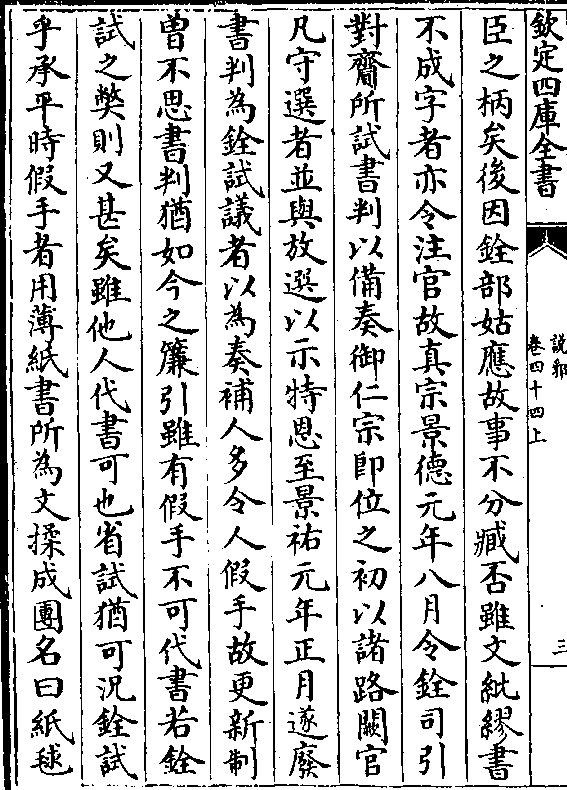 欽定四庫全書
說郛
卷四十四上
三
臣之柄矣後因銓部姑應故事不分臧否雖文紕繆書
不成字者亦令注官故真宗景德元年八月令銓司引
對齎所試書判以備奏御仁宗即位之初以諸路闕官
凡守選者並與放選以示特恩至景祐元年正月遂廢
書判為銓試議者以為奏補人多令人假手故更新制
曾不思書判猶如今之簾引雖有假手不可代書若銓
試之弊則又甚矣雖他人代書可也省試猶可況銓試
乎承平時假手者用薄紙書所為文揉成團名曰紙毬